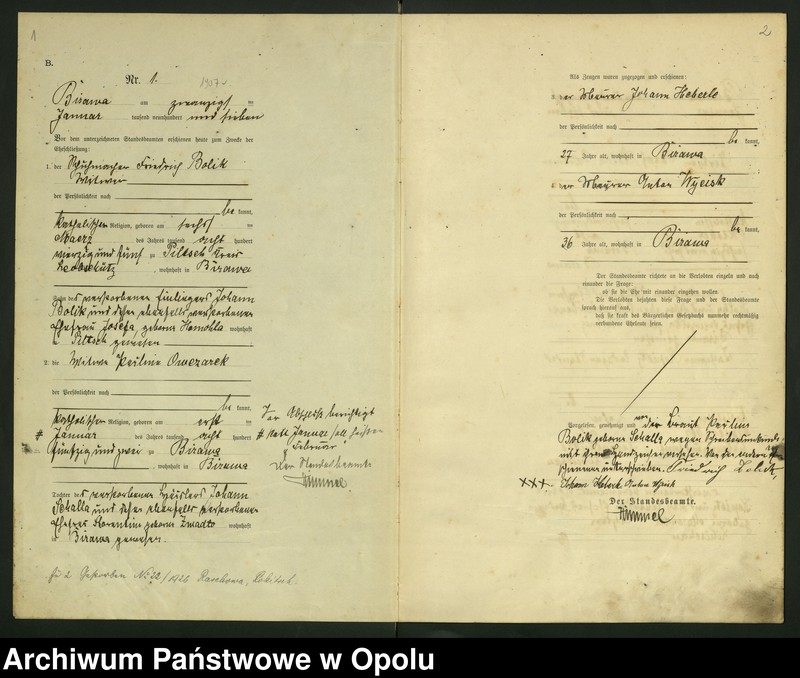 1
B.
Nr. 1.
1907
Birawa am zwanzigsten
Januar tausend neunhundert und sieben
Vor dem unterzeichneten Standesbeamten erschienen heute zum Zweck der
Eheschließung:
1. der Schuhmacher Friedrich Bolik
Witwer
der Persönlichkeit nach
be kannt,
katholischer Religion, geboren am sechs ten
Maerz des Jahres tausend acht hundert
vierzig und fünf zu Piltsch Kreis
Leobschütz, wohnhaft in Birawa
Sohn des verstorbenen Einliegers Johann
Bolik und dessen ebenfalls verstorbenen
Ehefrau Josefa, geborne wohnhaft
in Piltsch gewesen
2. die Witwe Pauline Owczarek
der Persönlichkeit nach
be kannt,
katholischer Religion, geboren am ersten
# Januar des Jahres tausend acht hundert
fünfzig und zwei zu Birawa
, wohnhaft in Birawa
Tochter des verstorbenen Häuslers Johann
Schalla und dessen ebenfalls verstorbenen
Ehefrau Florentine geborne wohnhaft
in Birawa gewesen.
Vor Abschluß berichtigt
# statt Januar soll heißen
Februar
Der Standesbeamte
Himmel
zu 2 Gestorben No 22/1926
2
Als Zeugen waren zugezogen und erschienen:
der Maurer Johann Heberle
der Persönlichkeit nach
be kannt,
37 Jahre alt, wohnhaft in Birawa
der Maurer Anton Wycisk
der Persönlichkeit nach
be kannt,
36 Jahre alt, wohnhaft in Birawa
Der Standesbeamte richtete an die Verlobten einzeln und nach
einander die Frage:
ob sie die Ehe mit einander eingehen wollen.
Die Verlobten bejahten diese Frage und der Standesbeamte
sprach hierauf aus,
daß sie kraft des Bürgerlichen Gesetzbuchs nunmehr rechtmäßig
verbundene Eheleute seien.
Vorgelesen, genehmigt und von der Braut Pauline
Bolik geborne Schalla wegen Schreibensunkunde
mit ihrem Handzeichen versehen. Von den anderen
Erschienenen unterschrieben. Friedrich Bolik,
XXX. Johann Heberle Anton Wycisk
Der Standesbeamte.
Himmel
Archiwum Państwowe w Opolu